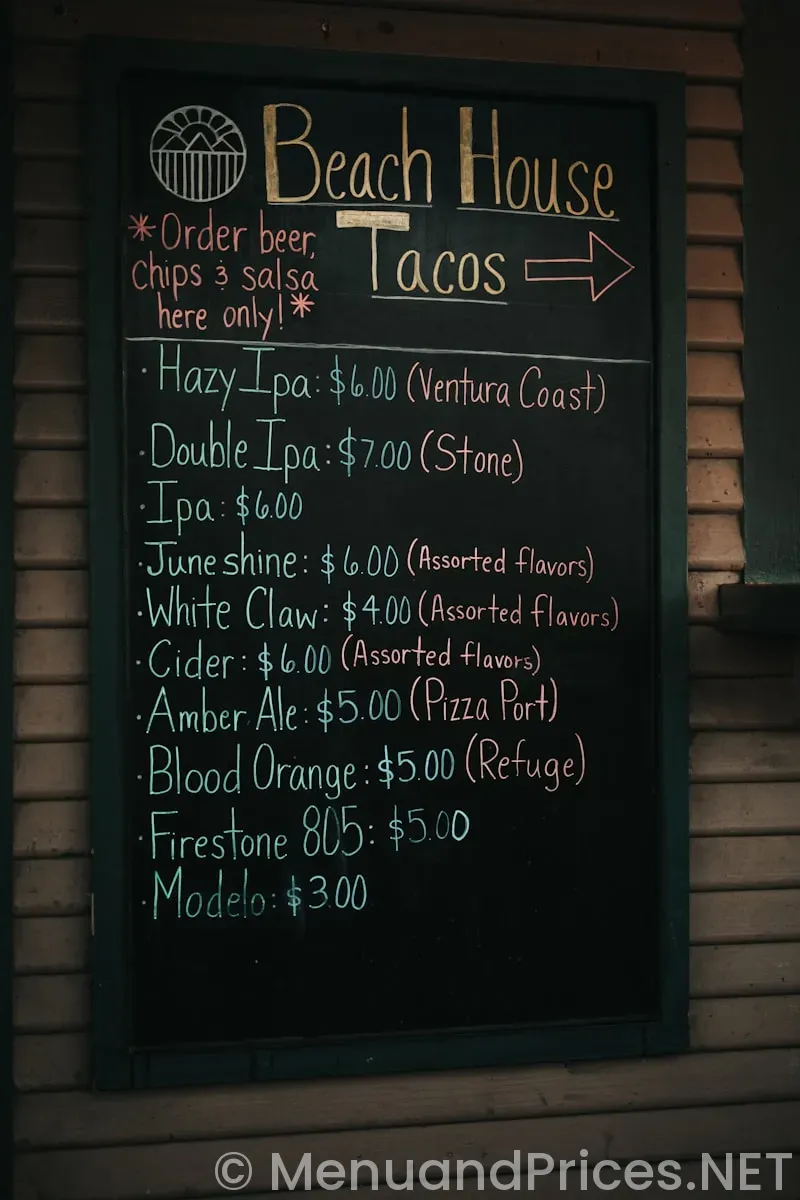 Beach House
Tacos
*Order beer,
chips & salsa
here only!*
· Hazy Ipa: $6.00 (Ventura Coast)
· Double Ipa: $7.00 (Stone)
· Ipa: $6.00
· Juneshine: $6.00 (Assorted flavors)
· White Claw: $4.00 (Assorted flavors)
· Cider: $6.00 (Assorted flavors)
· Amber Ale: $5.00 (Pizza Port)
· Blood Orange: $5.00 (Refuge)
· Firestone 805: $5.00
· Modelo: $3.00
© MenuandPrices.NET